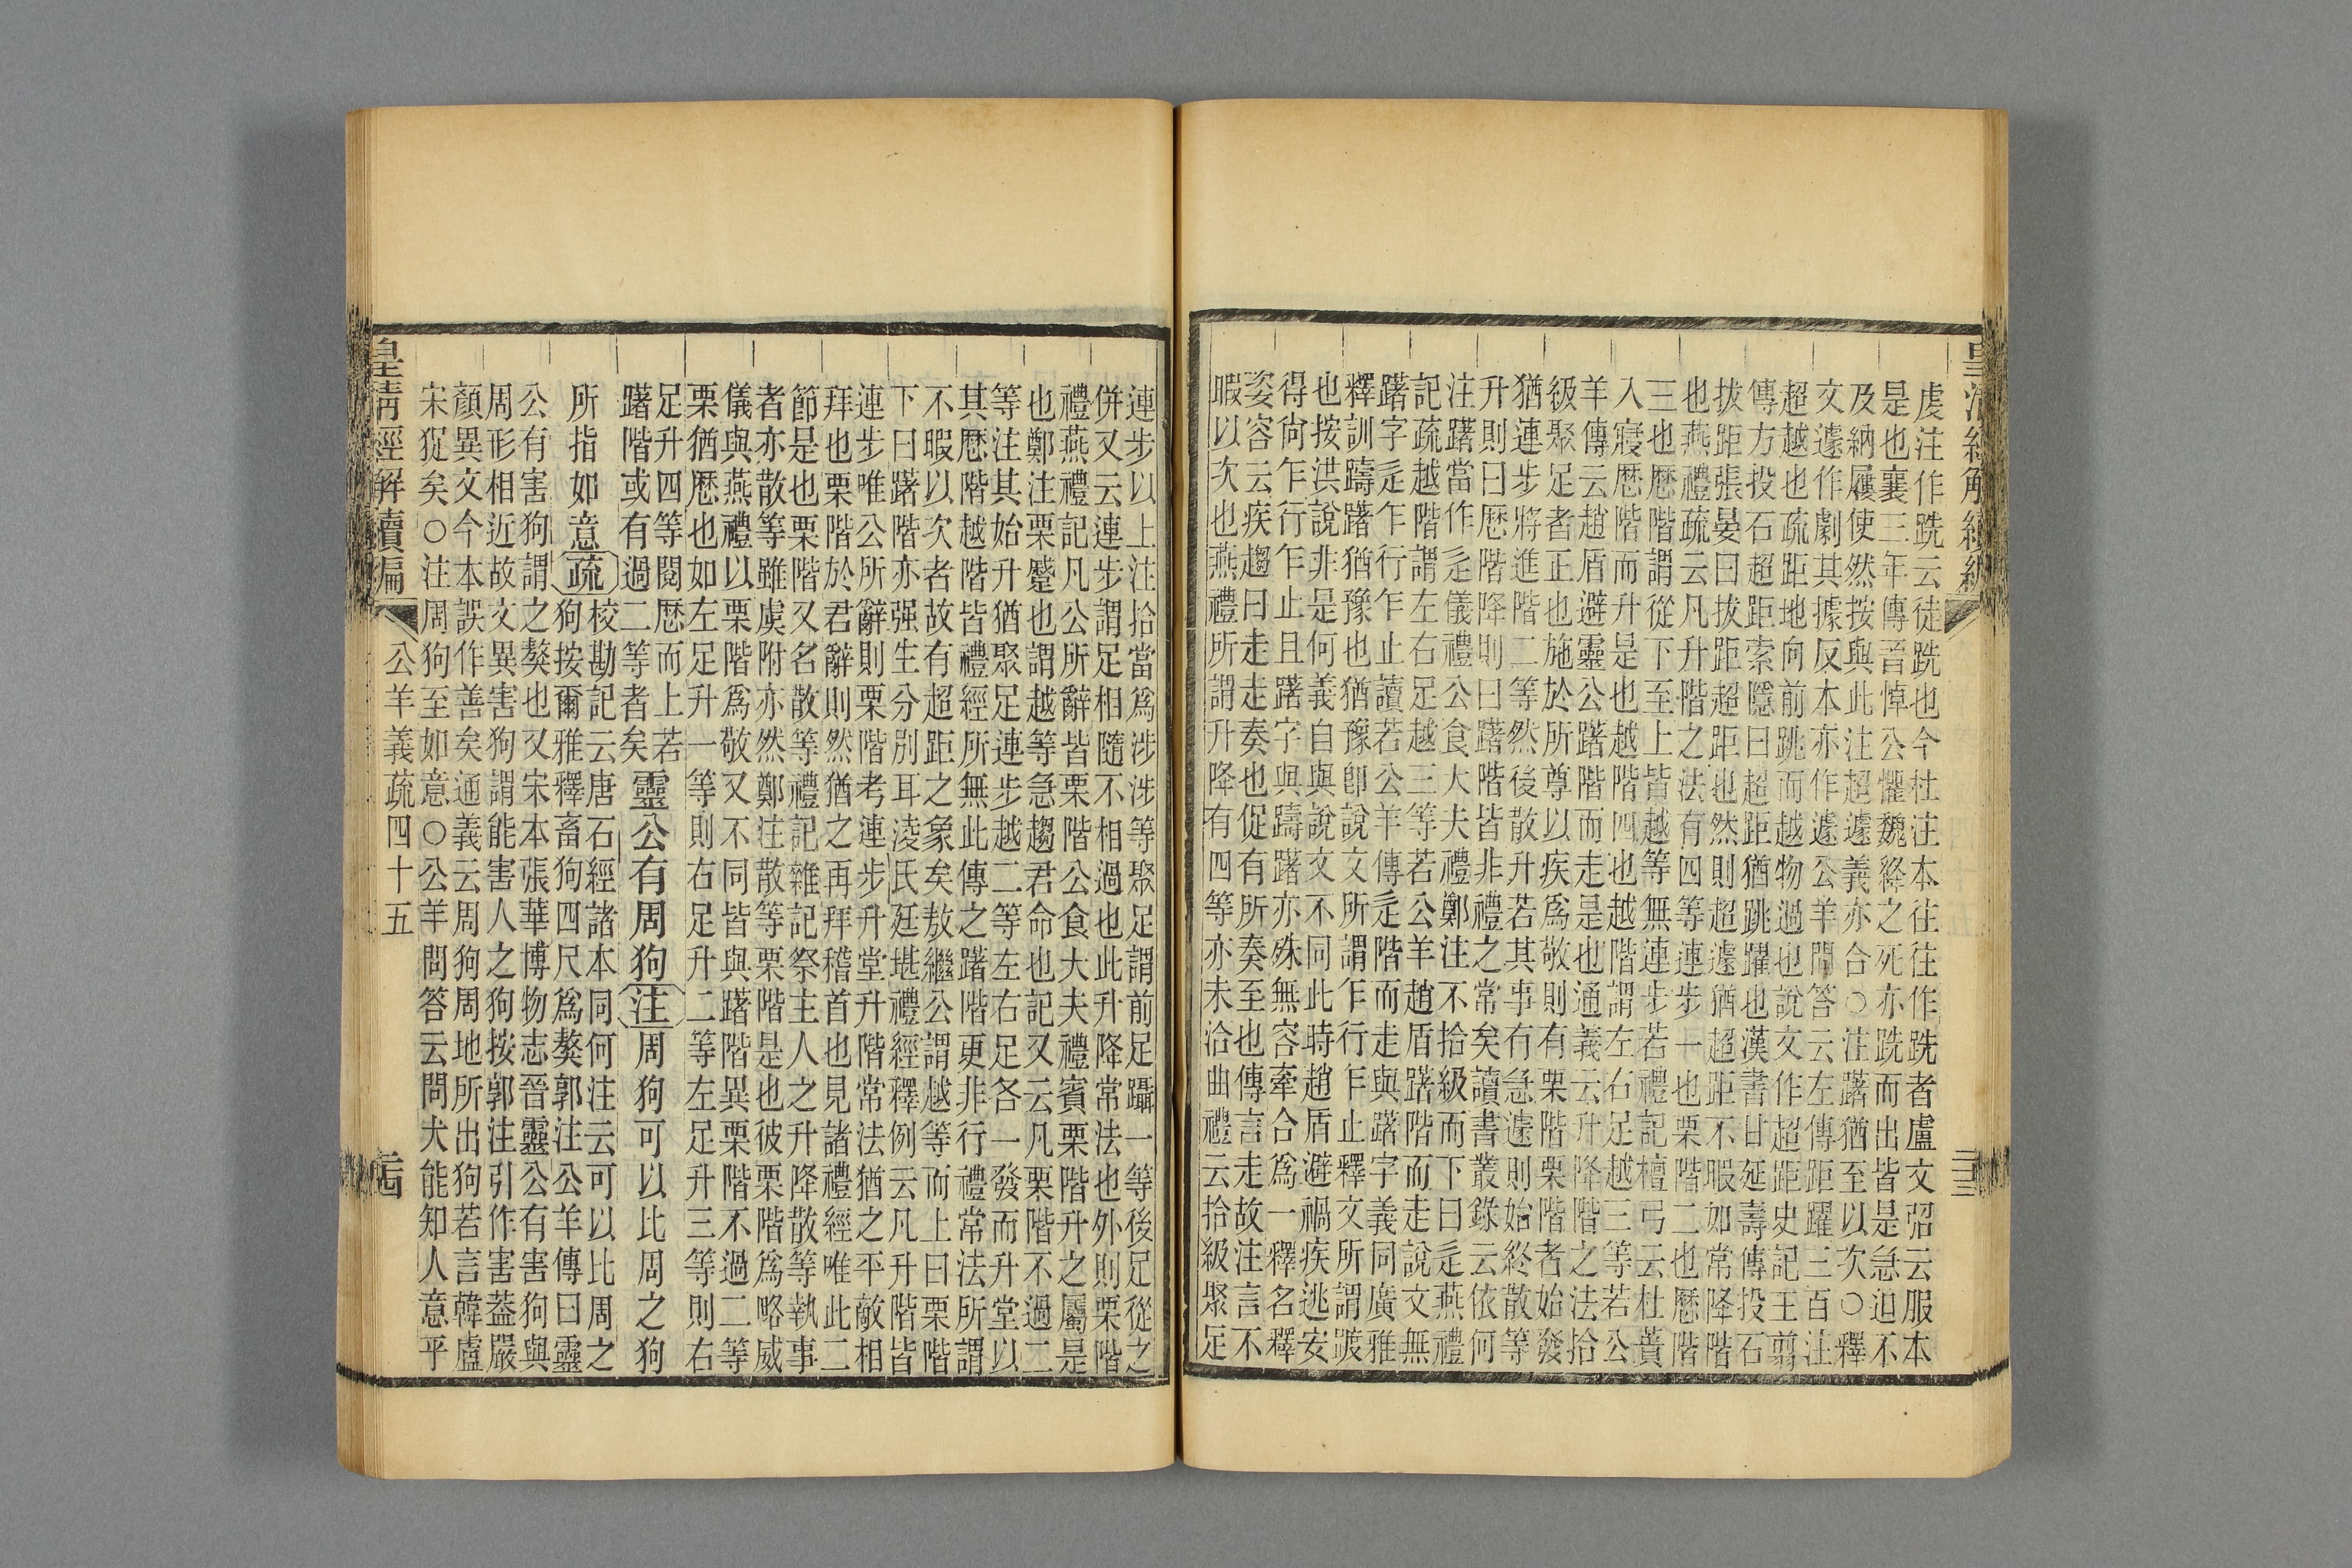 皇清經解續編
三十三
虔注作跣云徒跣也今杜注本往往作跣者盧文弨云服本
是也襄三年傳晉悼公懼魏絳之死亦跣而出皆是急迫不
及納屨使然按與此注超遽義亦合○注躇猶至以次○釋
文遽作劇其據反本亦作遽公羊問答云左傳距躍三百注
超越也疏距地向前跳而越物過也說文作超距史記王翦
傳方投石超距索隱曰超距猶跳躍也漢書甘延壽傳投石
拔距張晏曰拔距超距也然則超遽猶超距不暇如常降階
也燕禮疏云凡升階之法有四等連步一也栗階二也歷階
三也歷階謂從下至上皆越等無連步若禮記檀弓云杜蕢
入寢歷階而升是也越階四也越階謂左右足越三等若公
羊傳云趙盾避靈公躇階而走是也通義云升降階之法拾
級聚足者正也施於所尊以疾爲敬則有栗階栗階者始發
猶連步將進階二等然後散升若其事有急遽則始終散等
升則曰歷階降則曰躇階皆非禮之常矣讀書叢錄云依何
注躇當作辵儀禮公食大夫禮鄭注不拾級而下曰辵燕禮
記疏越階謂左右足越三等若公羊趙盾躇階而走說文無
躇字辵乍行乍止讀若公羊傳辵階而走與躇字義同廣雅
釋訓躊躇猶豫也猶豫卽說文所謂乍行乍止釋文所謂踱
也按洪說非是何義自與說文不同此時趙盾避禍疾逃安
得尙乍行乍止且躇字與躊躇亦殊無容牽合爲一釋名釋
姿容云疾趨曰走走奏也促有所奏至也傳言走故注言不
暇以次也燕禮所謂升降有四等亦未洽曲禮云拾級聚足
連步以上注拾當爲涉涉等聚足謂前足躡一等後足從之
併又云連步謂足相隨不相過也此升降常法也外則栗階
禮燕禮記凡公所辭皆栗階公食大夫禮賓栗階升之屬是
也鄭注栗蹙也謂越等急趨君命也記又云凡栗階不過二
等注其始升猶聚足連步越二等左右足各一發而升堂以
其歷階越階皆禮經所無此傳之躇階更非行禮常法所謂
不暇以次者故有超距之象矣敖繼公謂越等而上曰栗階
下曰躇階亦强生分別耳淩氏廷堪禮經釋例云凡升階皆
連步唯公所辭則栗階考連步升堂升階常法猶之平敵相
拜也栗階於君辭則然猶之再拜稽首也見諸禮經唯此二
節是也栗階又名散等禮記雜記祭主人之升降散等執事
者亦散等雖虞附亦然鄭注散等栗階是也彼栗階爲略威
儀與燕禮以栗階爲敬又不同皆與躇階異栗階不過二等
栗猶歷也如左足升一等則右足升二等左足升三等則右
足升四等閱歷而上若
躇階或有過二等者矣靈公有周狗注周狗可以比周之狗
所指如意疏校勘記云唐石經諸本同何注云可以比周之
狗按爾雅釋畜狗四尺爲獒郭注公羊傳曰靈
公有害狗謂之獒也又宋本張華博物志晉靈公有害狗與
周形相近故文異害狗謂能害人之狗按郭注引作害蓋嚴
顏異文今本誤作善矣通義云周狗周地所出狗若言韓盧
宋猐矣○注周狗至如意○公羊問答云問犬能知人意乎
皇清經解續編
公羊義疏四十五
三十四